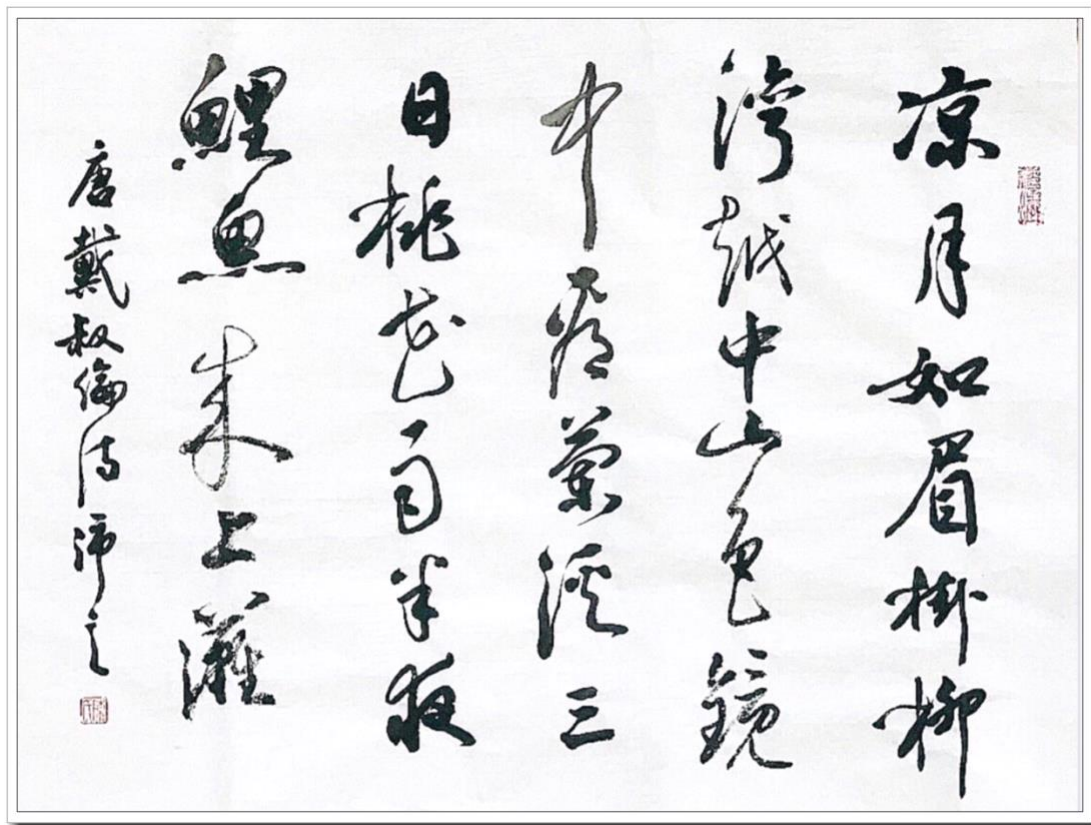 凉月如眉掛柳
灣越中山色鏡
中看蘭溪三
日桃花雨半夜
鯉魚来上灘
唐戴叔倫詩沛之